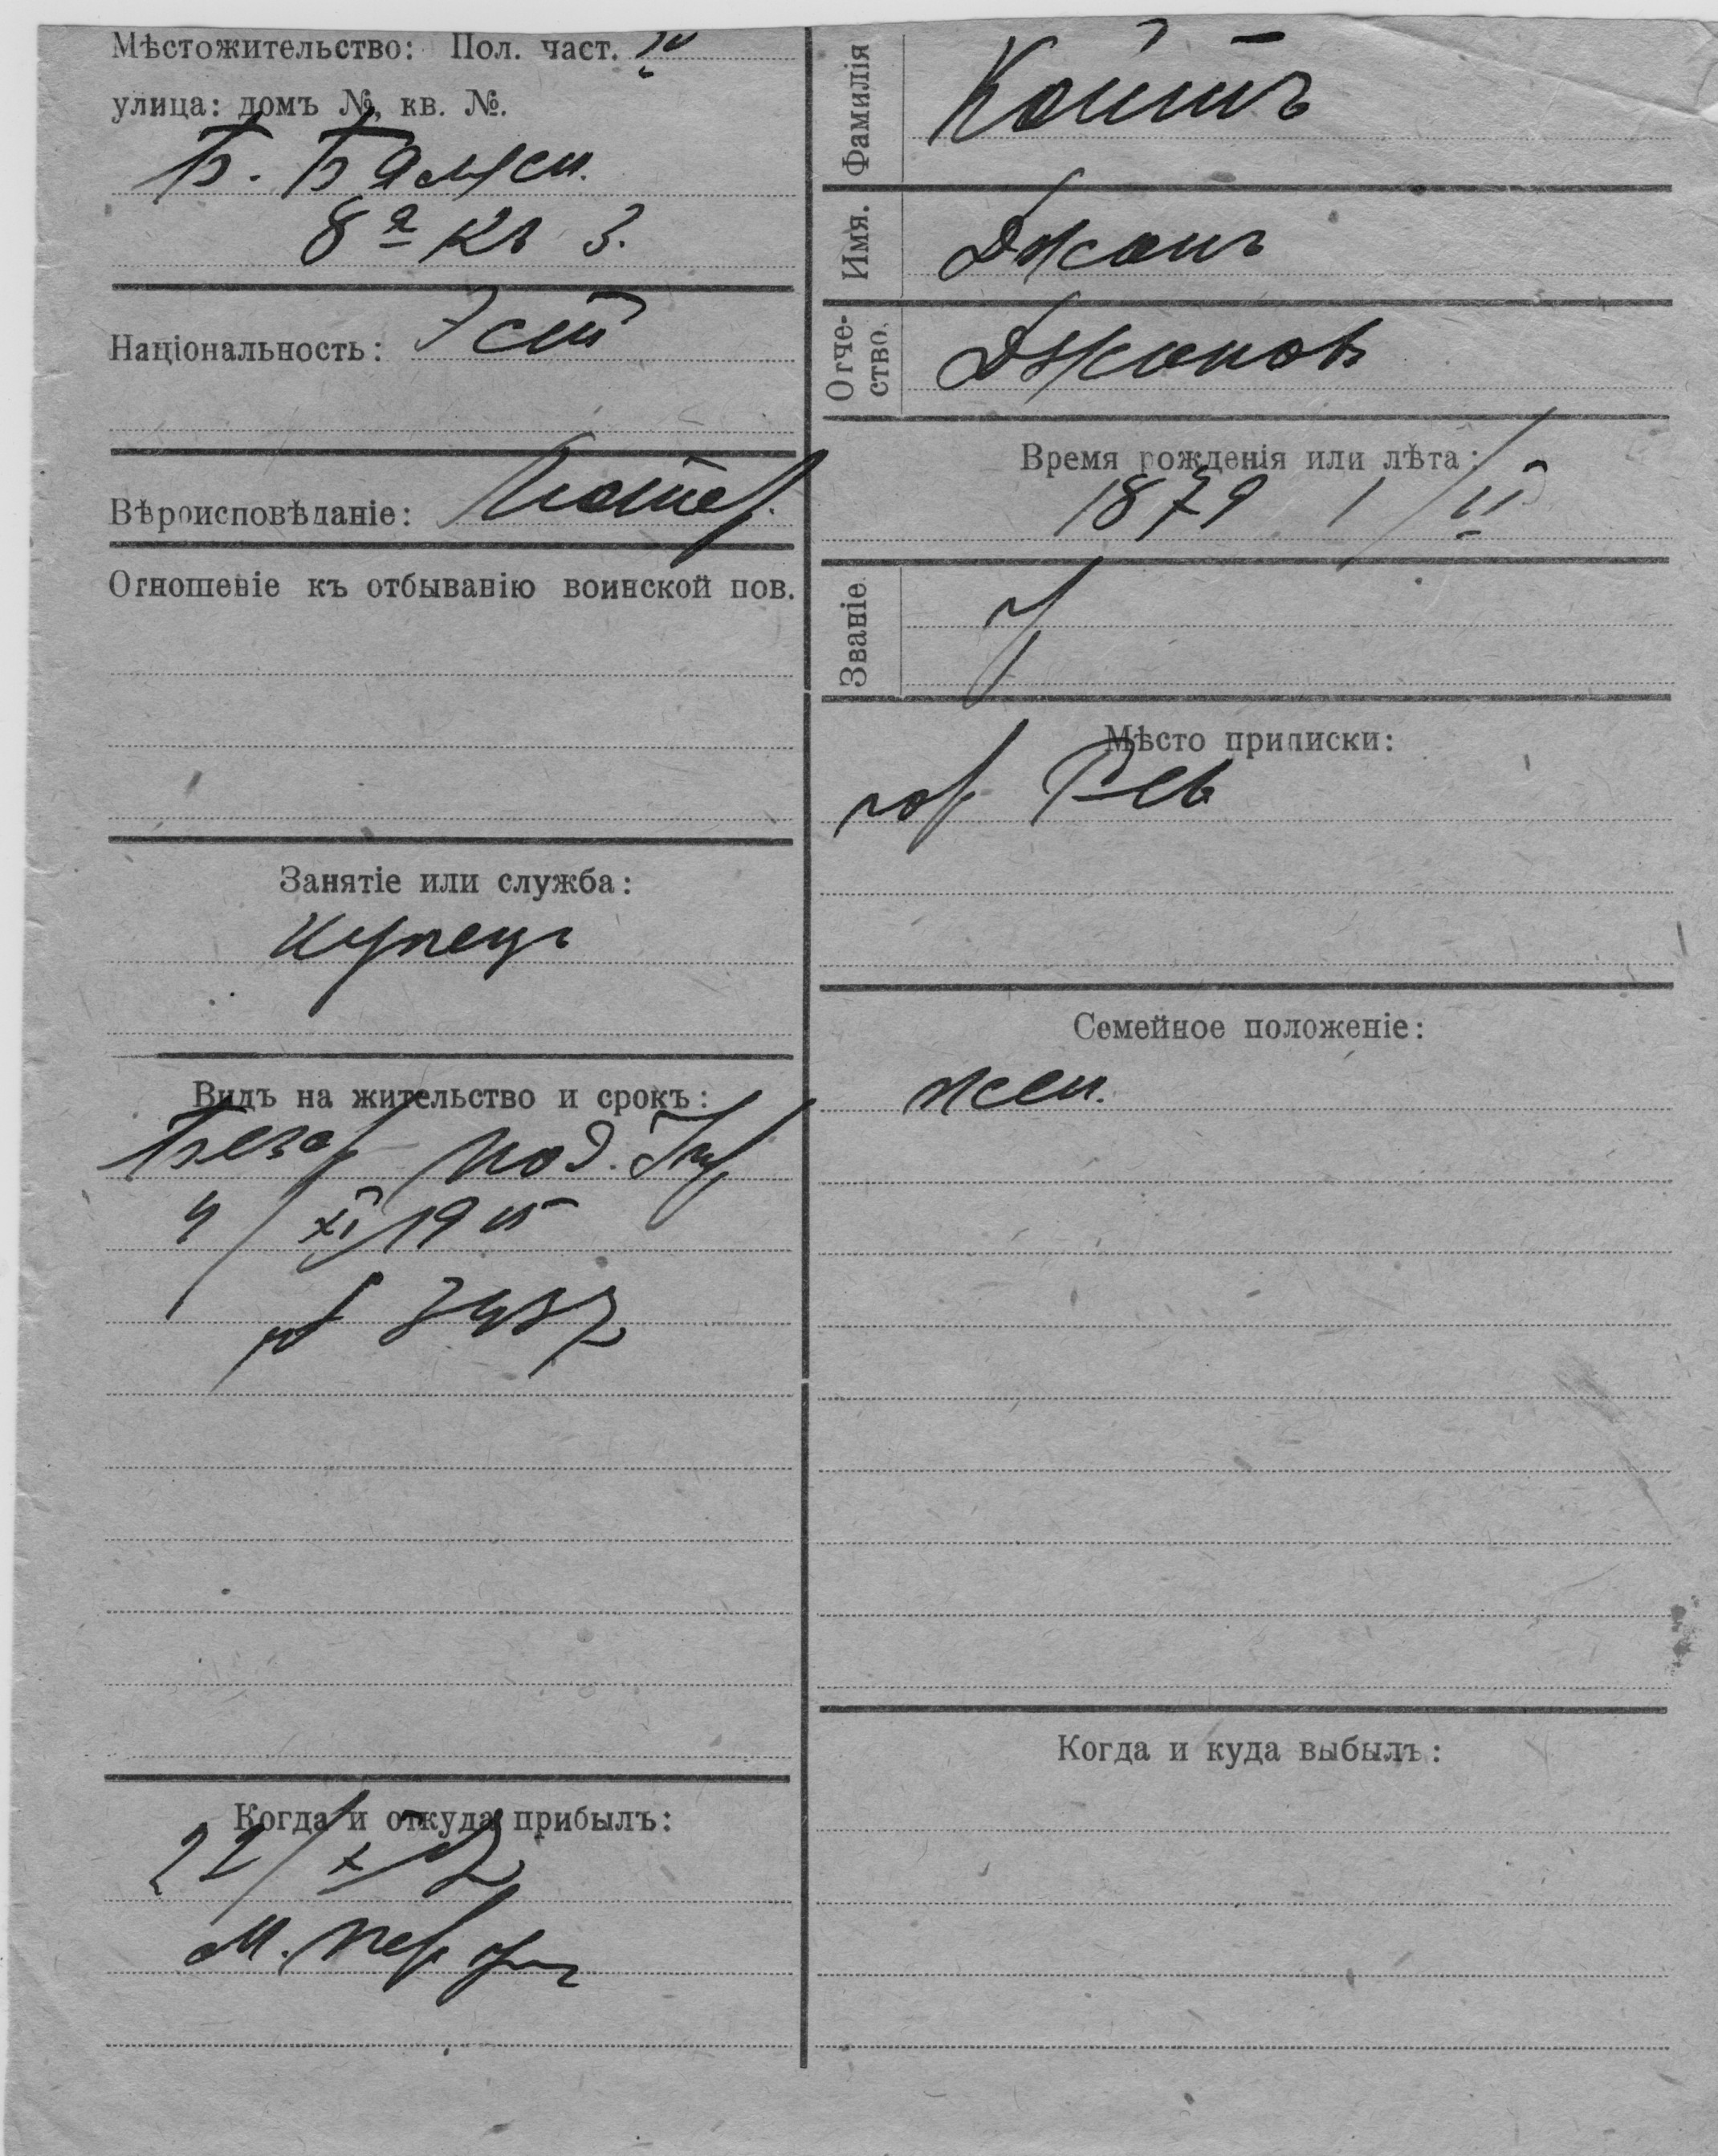 Мѣстожительство: Пол. част. IV
улица: домъ №, кв. №.
Б. Батжсн.
8а кв 3.
Національность: Эст
Вѣроисповѣданіе: Лютер.
Отношеніе къ отбыванію воинской пов.
Занятіе или служба:
Купецъ
Видъ на жительство и срокъ:
Безср под.
4/XI 1915
№ 3437
Когда и откуда прибылъ:
22/X 17
М.
Фамилія Коиттъ
Имя. Джонъ
Отче-
ство. Джонов
Время рожденія или лѣта:
1879 1/II
Званіе
Мѣсто приписки:
гор Рев
Семейное положеніе:
жен.
Когда и куда выбылъ: